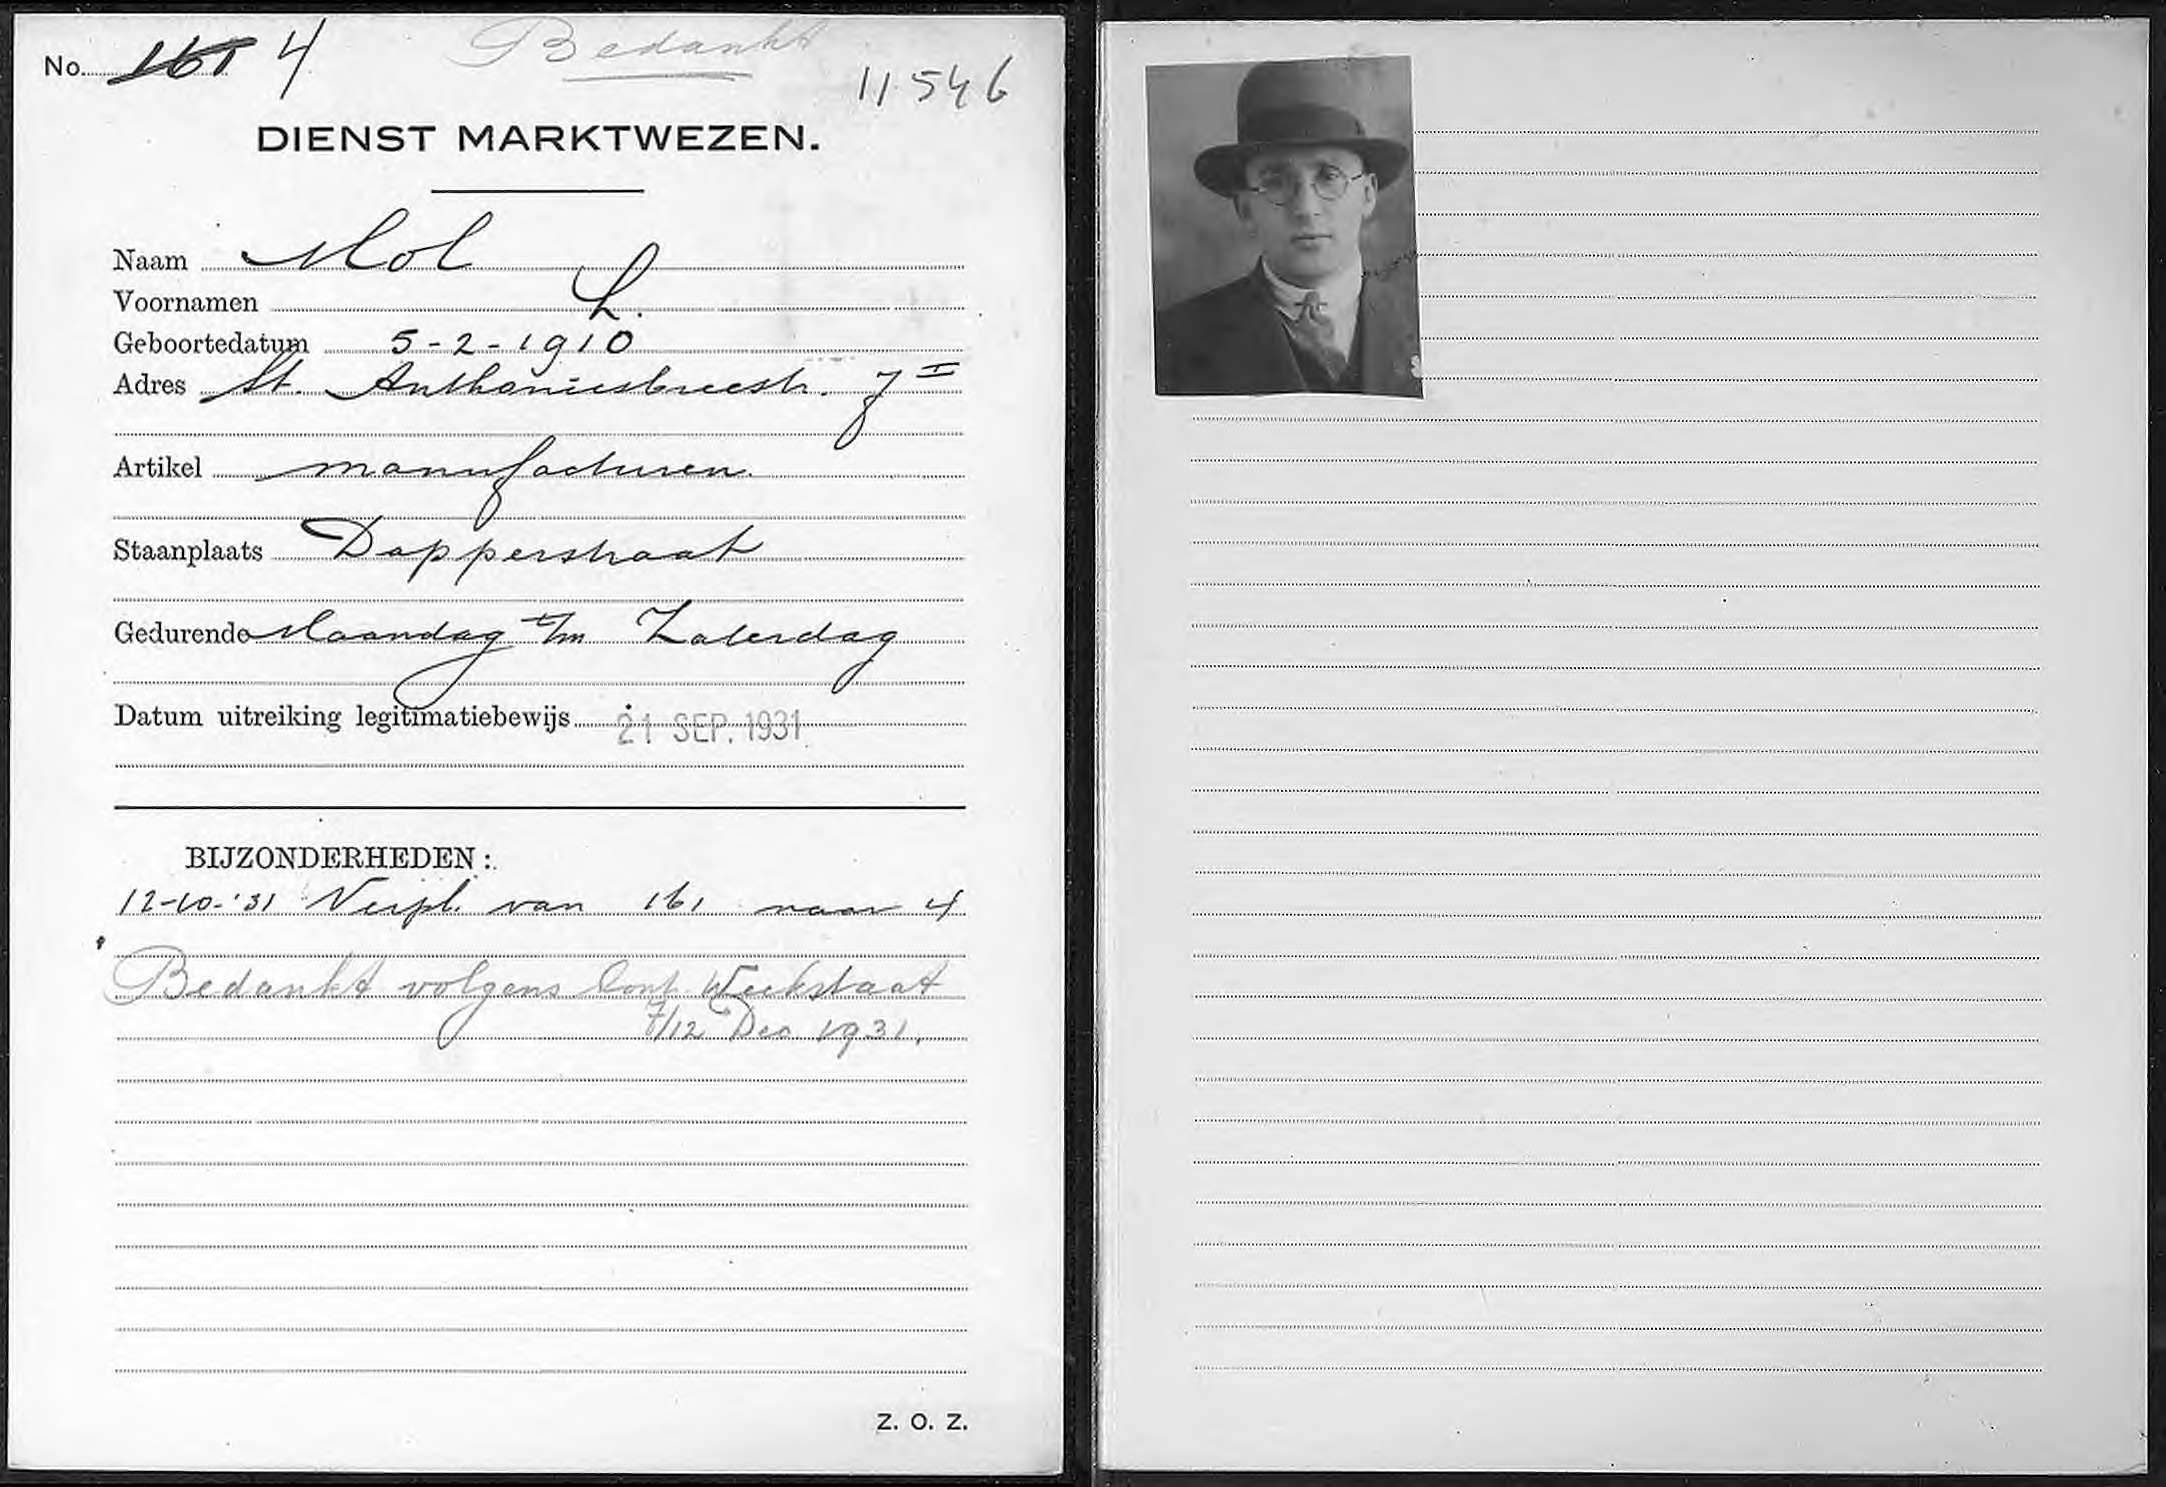 No. 161 4 Bedankt
11546
DIENST MARKTWEZEN.
Naam Mol
Voornamen L.
Geboortedatum 5-2-1910
Adres St. Anthoniesbreestr. 7 II
Artikel manufacturen.
Staanplaats Dapperstraat
Gedurende Maandag t/m Zaterdag
Datum uitreiking legitimatiebewijs 21 SEP. 1931
BIJZONDERHEDEN:
12-10-'31 Verpl. van 161 naar 4
Bedankt volgens Cont. Weekstaat
7/12 Dec 1931.
Z. O. Z.